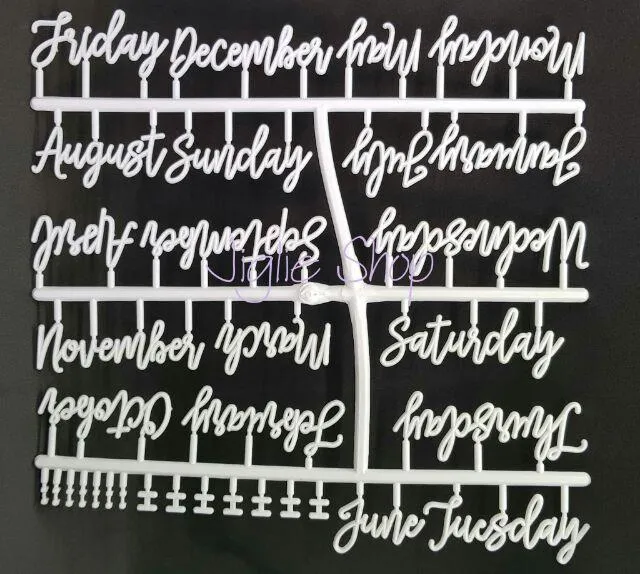 Friday December May Monday
August Sunday July January
April September Wednesday
Jiglie Shop
November March Saturday
October February Thursday
June Tuesday